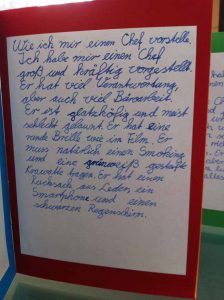 Wie ich mir einen Chef vorstelle
Ich habe mir einen Chef
groß und kräftig vorgestellt.
Er hat viel Verantwortung,
aber auch viel Büroarbeit.
Er ist glatzköpfig und meist
schlecht gelaunt. Er hat eine
runde Brille wie im Film. Er
muss natürlich einen Smoking
und eine grünweiß gestreifte
Krawatte tragen. Er hat einen
Rucksack aus Leder, ein
Smartphone und einen
schwarzen Regenschirm.